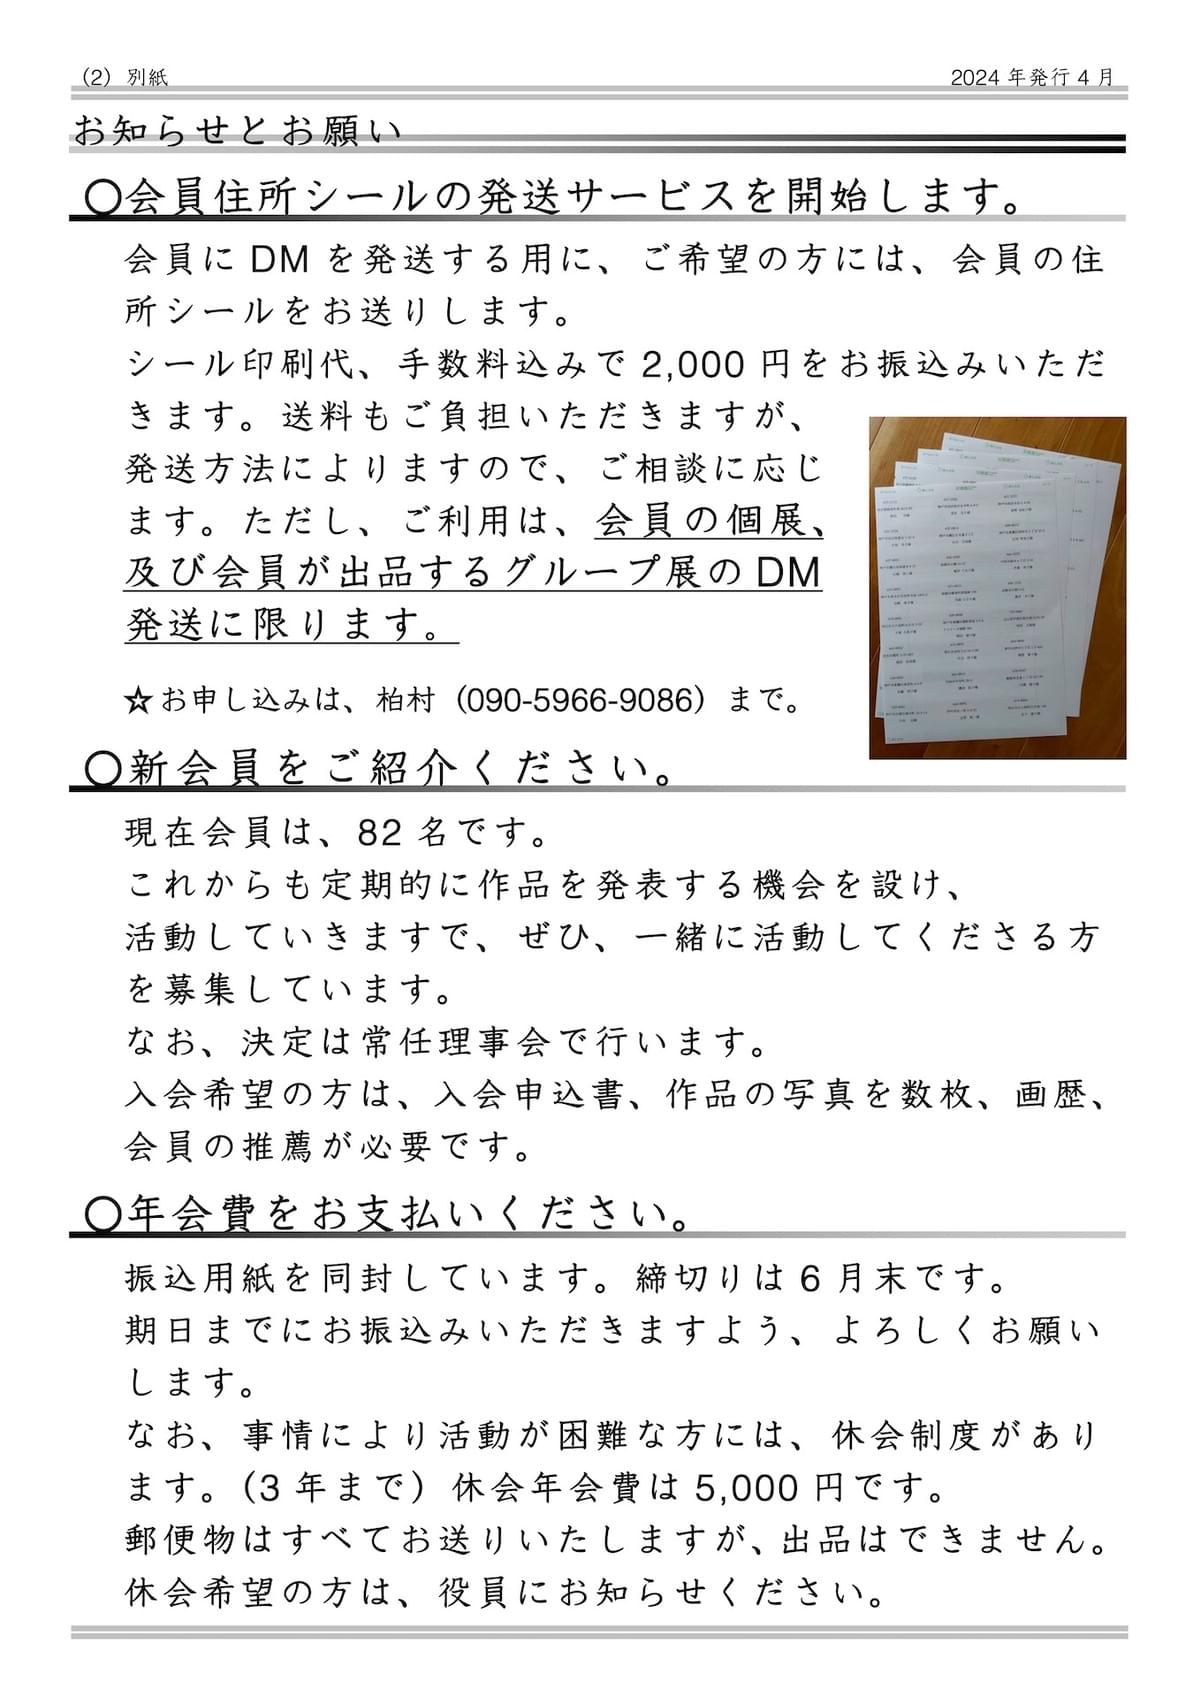 （2）別紙
2024 年発行 4 月
お知らせとお願い
〇会員住所シールの発送サービスを開始します。
会員に DM を発送する用に、ご希望の方には、会員の住
所シールをお送りします。
シール印刷代、手数料込みで 2,000 円をお振込みいただ
きます。送料もご負担いただきますが、
発送方法によりますので、ご相談に応じ
ます。ただし、ご利用は、会員の個展、
及び会員が出品するグループ展の DM
発送に限ります。
☆お申し込みは、柏村（090-5966-9086）まで。
〇新会員をご紹介ください。
現在会員は、82 名です。
これからも定期的に作品を発表する機会を設け、
活動していきますで、ぜひ、一緒に活動してくださる方
を募集しています。
なお、決定は常任理事会で行います。
入会希望の方は、入会申込書、作品の写真を数枚、画歴、
会員の推薦が必要です。
〇年会費をお支払いください。
振込用紙を同封しています。締切りは 6 月末です。
期日までにお振込みいただきますよう、よろしくお願い
します。
なお、事情により活動が困難な方には、休会制度があり
ます。（3 年まで）休会年会費は 5,000 円です。
郵便物はすべてお送りいたしますが、出品はできません。
休会希望の方は、役員にお知らせください。